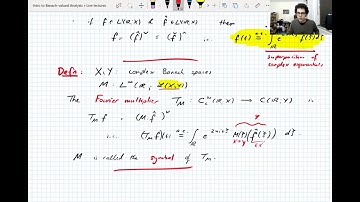 Intro to Banach-valued Analysis • Live lectures
if f ∈ L¹(ℝ;X) & f̂ ∈ L¹(ℝ;X) then
f = (f̂)ˇ = (fˇ)^ i.e. f(t) a.e. = ∫_ℝ e f̂(ξ) dξ
Superposition of
complex exponentials
Defn: X, Y: complex Banach spaces
M: L^∞(ℝ, ℒ(X,Y))
The Fourier multiplier T_M: C_c^∞(ℝ;X) → C(ℝ;Y) is
T_M f = (M f̂)ˇ Y
i.e. (T_M f)(t) a.e. = ∫_ℝ e^{2πitξ} M(ξ)(f̂(ξ)) dξ
X→Y ∈X
M is called the symbol of T_M.